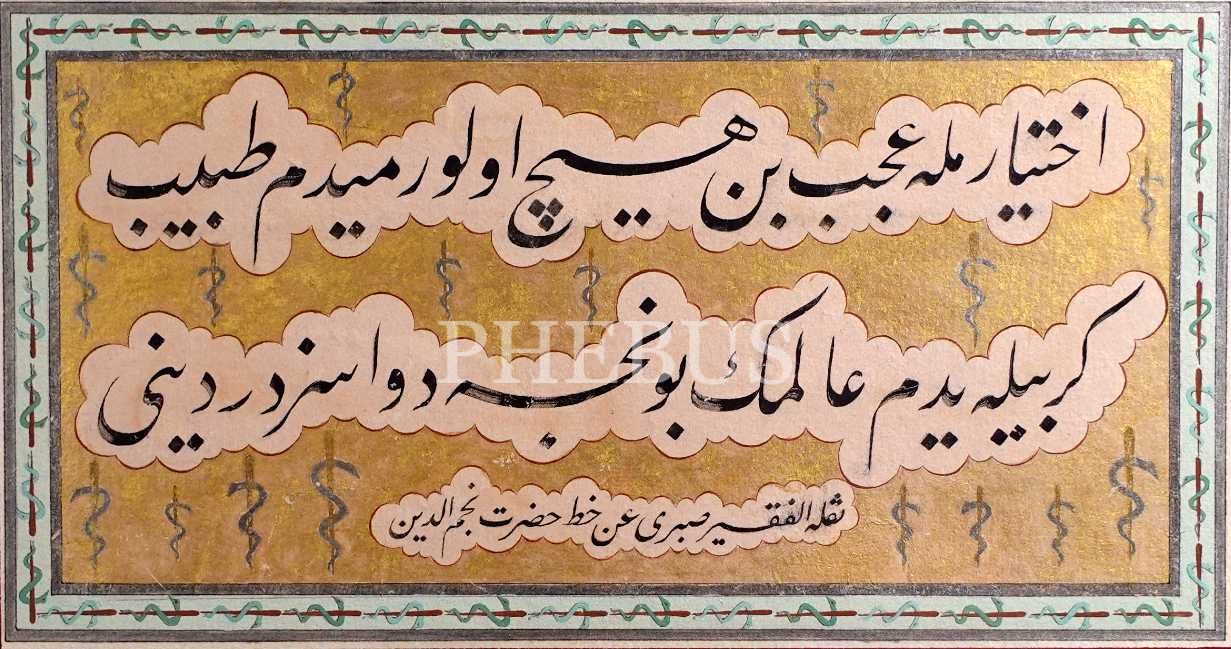 اختیارمله عجب بن هیچ اولورمیدم طبیب
کر بیلیدم عالمك بونجه دواسز دردینی
نقله الفقیر صبری عن خط حضرت نجم الدین
PHEBUS